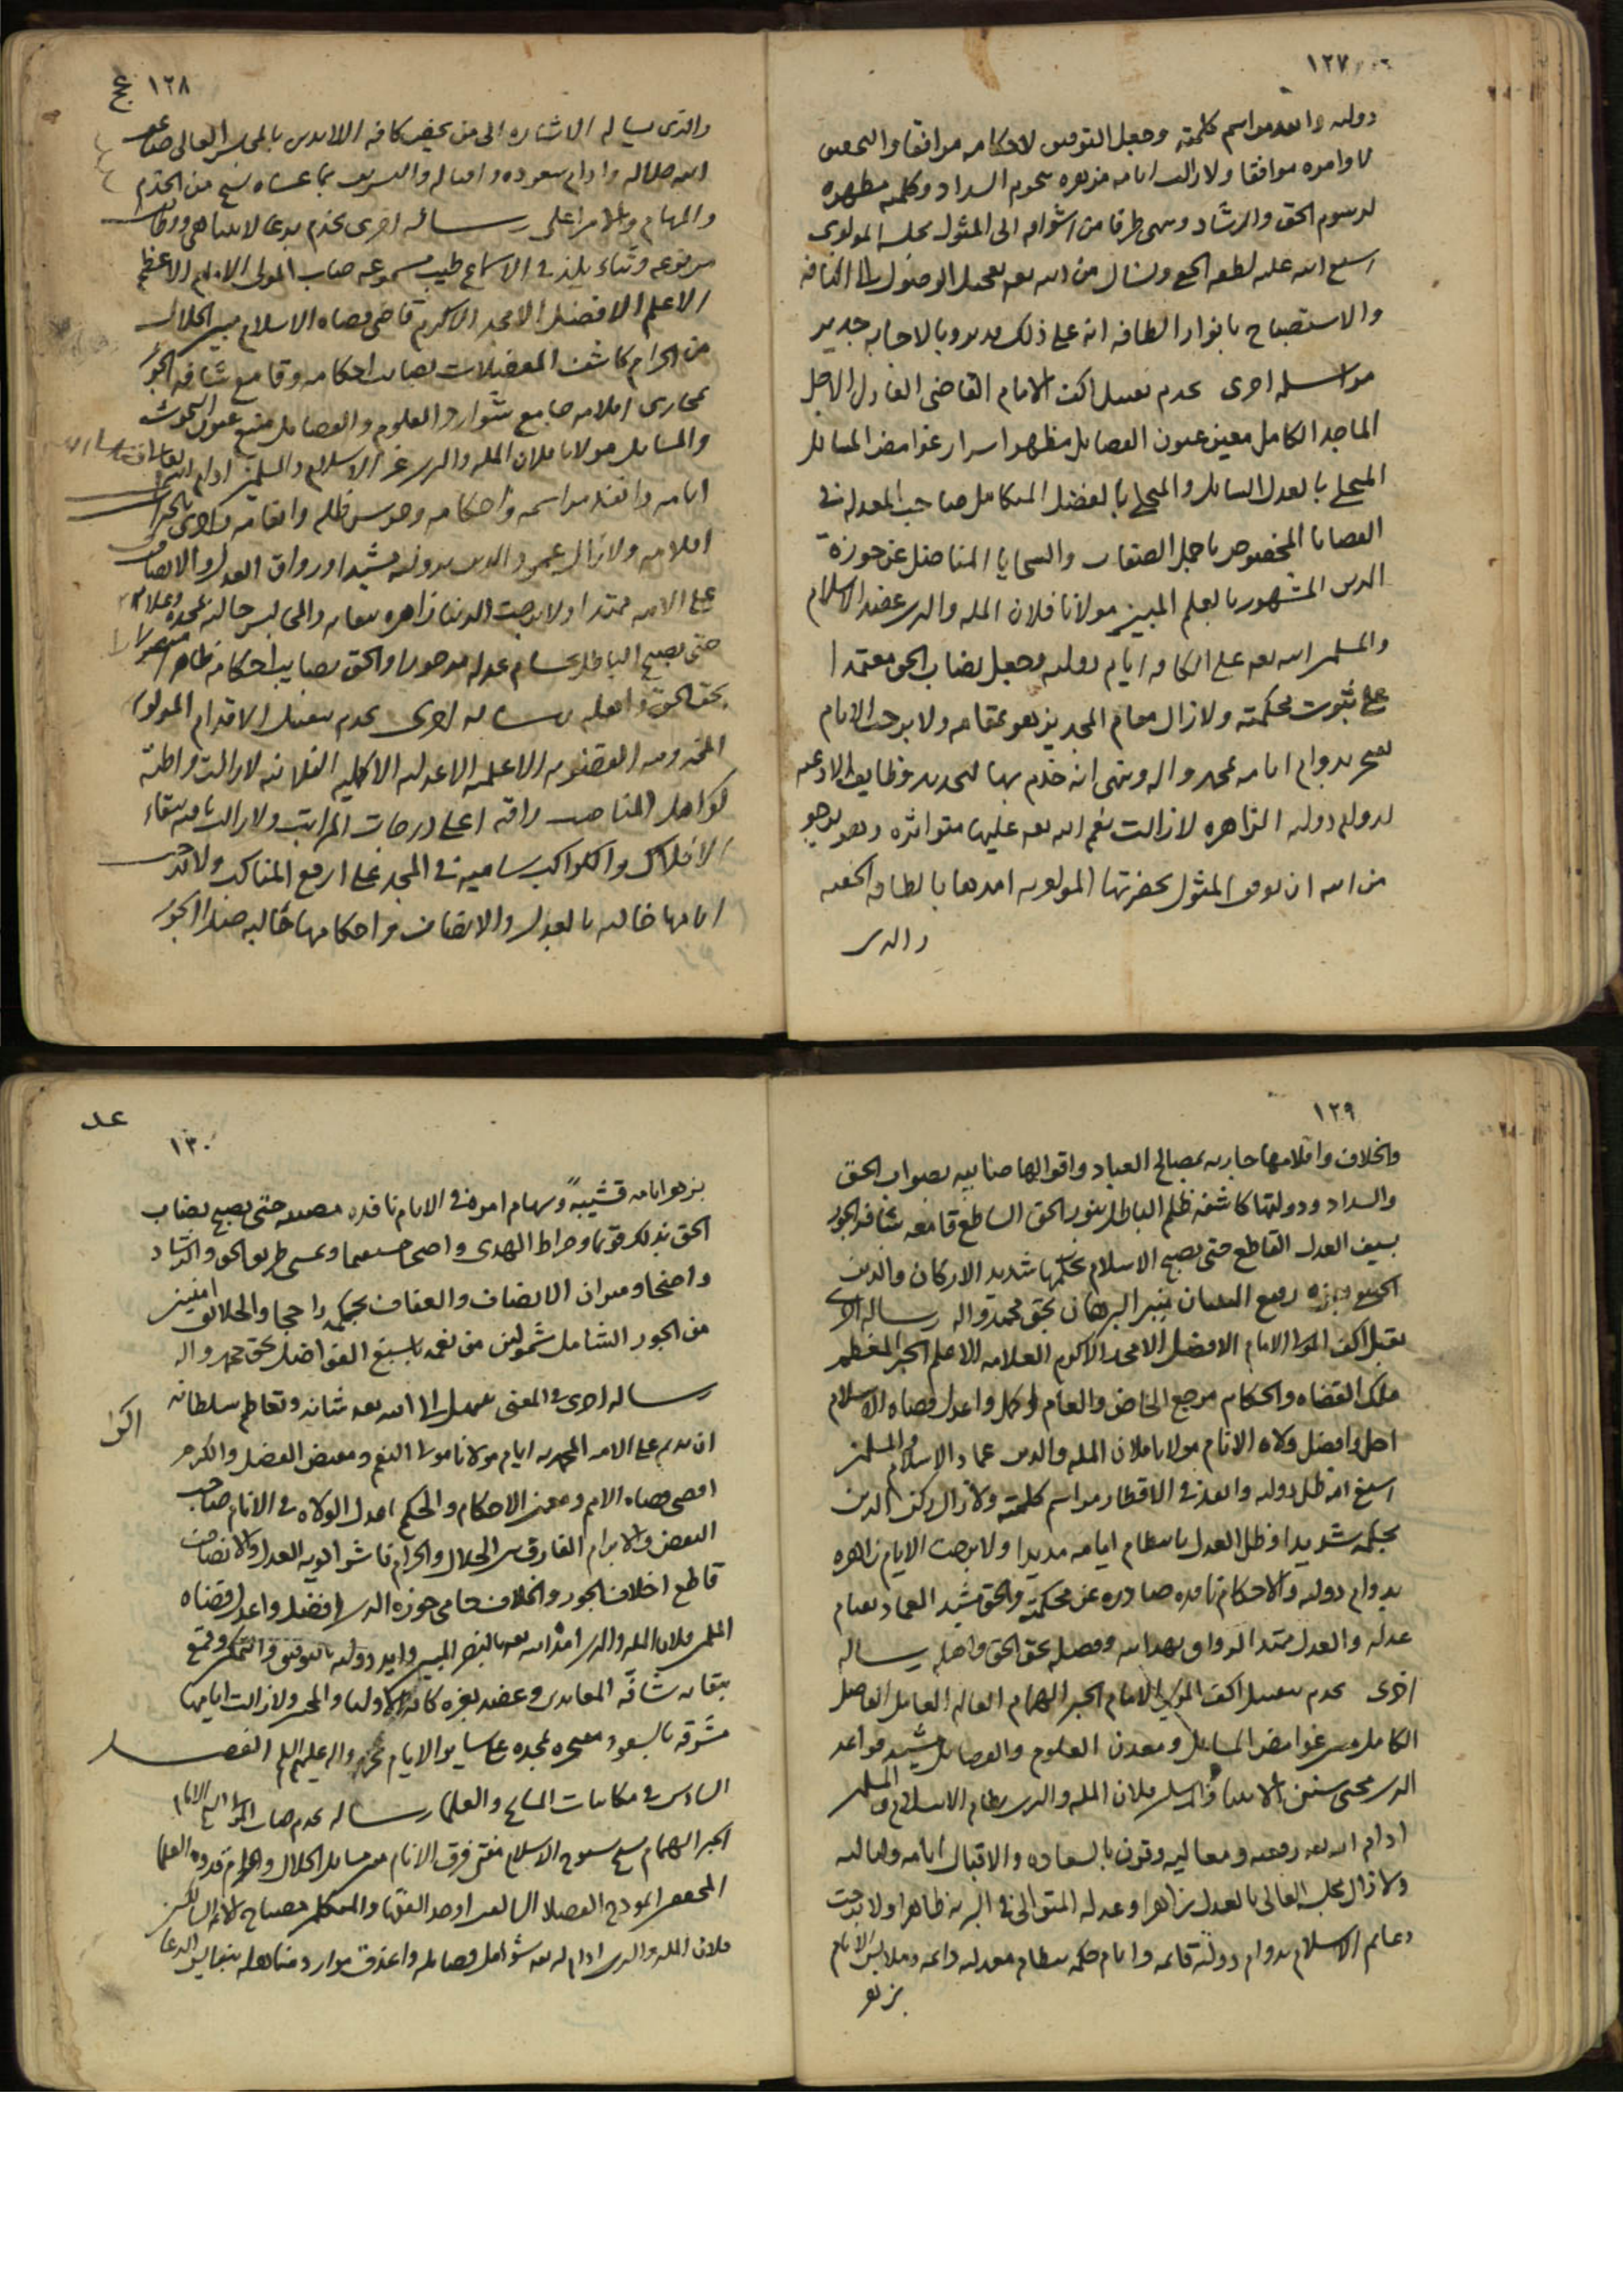 ١٢٧
دولته وانفد مراسم كلمته وجعل التوفيق لاحكامه مرافقا والتحقيق
لاوامره موافقا ولا زالت ايامه مزهره بنجوم السداد وكلمته مظهره
لرسوم الحق والرشاد وينهى طرفا من اشواقه الى المثول بمجلسه المولوى
اسبغ الله عليه لطفه الخفى ويسال من الله تعالى تعجيل الوصول الى اكنافه
والاستصباح بانوار الطافه انه على ذلك قدير وبالاجابه جدير
مراسله اخرى يخدم بتقبيل اكف الامام القاضى العادل الاجل
الماجد الكامل معين عيون الفضايل مظهر اسرار غوامض المسايل
المتجلى بالعدل السايل والمتحلى بالفضل المتكامل صاحب المعدله فى
القضايا المخصوص باجمل الصفات والسجايا المناضل عن حوزة
الدين المشهور بالعلم المبين مولانا فلان المله والدين عضد الاسلام
والمسلمين الله تعالى على الكافه ايام دولته وجعل نصاب الحق معتمدا
على ثبوت محكمته ولا زال مقام المجد يزهو بمقامه ولا برحت الايام
تفتخر بدوام ايامه بمحمد واله وينهى انه خدم بها لتجديد وظايف الادعيه
لدوام دولته الزاهره لا زالت نعم الله تعالى عليها متواتره وهو يرجو
من الله ان يوفق المثول بحضرتها المولويه امدها بالطافه الخفيه
والذى
١٢٨ عج
والذى يساله الاشاره الى من يخص كافه الالدين بالمجلس العالى ضاعف
الله جلاله وادام سعوده واقباله والتشريف بما عساه يسنح من الخدم
والمهام والامر اعلى رساله اخرى يخدم بدعا لايتناهى ورقات
مرفوعه وثناء يلذ فى الاسماع طيب مسموعه جناب المولى الامام الاعظم
الاعلم الافضل الامجد الاكرم قاضى قضاه الاسلام مبين الحلال
من الحرام كاشف المعضلات بصايب احكامه وقامع شافه الجور
بمجارى اقلامه جامع شوارد العلوم والفضايل منبع عيون البحوث
والمسايل مولانا فلان المله والدين عز الاسلام والمسلمين ادام الله
ايامه وانفذ مراسمه واحكامه وحرس ظله وانعامه واجرى بالخيرات
اقلامه ولا زال عمود الدين بدولته مشيدا ورواق العدل والانصاف
على الامه ممتدا ولا برحت الدنيا زاهره ببقايه والمجالس حاليه بمجده وعلائه
حتى يصبح الباطل بحسام عدله مدحورا والحق بصايب احكامه ظاهرا منصورا
بحق الحق واهله رساله اخرى يخدم بتقبيل الاقدام المولويه
المخدوميه القضويه الاعلميه الاعدليه الاكمليه الفلانيه لا زالت واطئة
كواهل المناصب راقيه اعلى درجات المراتب ولا زالت باقيه ببقاء
الافلاك والكواكب ساميه فى المجد على ارفع المناكب ولا برحت
ايامها حاليه بالعدل والانصاف واحكامها خاليه ضد الجور
١٢٩
والخلاف واقلامها جاريه بمصالح العباد واقوالها صائبه بصواب الحق
والسداد ودولتها كاشفه ظلم الباطل بنور الحق الساطع قامعه شافه الجور
بسيف العدل القاطع حتى يصبح الاسلام بحكمها شديد الاركان والدين
رفيع البنيان نير البرهان بحق محمد واله رساله اخرى
يقبل اكف المولى الامام الافضل الامجد الاكرم العلامه الاعلم الحبر المعظم
ملك القضاه والحكام مرجع الخاص والعام اكمل واعدل قضاه الاسلام
اجل وافضل ولاه الانام مولانا فلان المله والدين عماد الاسلام والمسلمين
اسبغ الله ظل دولته وانفذ فى الاقطار مراسم كلمته ولا زال ركن الدين
بحكمه شديدا وظل العدل بانتظام ايامه مديدا ولا برحت الايام زاهره
بدوام دولته والاحكام نافذه صادره عن محكمته والحق مشيد العماد بقيام
عدله والعدل ممتد الرواق بهدايته وفضله بحق الحق واهله رساله
اخرى يخدم بتقبيل اكف المولى الامام الحبر الهمام العالم العامل الفاضل
الكامل مبين غوامض المسايل ومعدن العلوم والفضايل مشيد قواعد
الدين محيى سنن الانبيا والمرسلين فلان المله والدين نظام الاسلام والمسلمين
ادام الله تعالى رفعته ومعاليه وقرن بالسعاده والاقبال ايامه ولياليه
ولا زال مجلسه العالى بالعدل زاهرا وعدله المتوالى فى البريه ظاهرا ولا برحت
دعايم الاسلام بدوام دولته قائمه وايام حكمه بنظام معدلته دائمه وملابس الايام
بزهو
عد
١٣٠
بزهو ايامه قشيبة وسهام اموره فى الايام نافذه مصيبه حتى يصبح نصاب
الحق بذلك قويما وصراط الهدى واضحا مستقيما وعسى طريق الحق والرشاد
واضحا وميزان الانصاف والعفاف بحكمه راجحا والخلايق امنين
من الجور الشامل شمولين من نعمه باسبغ الفواضل بحق محمد واله
رساله اخرى فى المعنى يبتهل الى الله تعالى شانه وتعاظم سلطانه
ان يديم على الامه المحمديه ايام مولانا مولى النعم ومفيض الفضل والكرم
اقضى قضاه الامم ومعين الاحكام والحكم اعدل الولاه فى الانام صاحب
النقض والابرام الفارق بين الحلال والحرام ناشر الويه العدل والانصاف
قاطع اخلاف الجور والخلاف حامى حوزه الدين افضل واعدل قضاه
المسلمين فلان المله والدين امده الله تعالى بالنصر المبين وايد دولته بالتوفيق والتمكين وقمع
ببقايه شافه المعاندين وعضد بعزه كافه الاوليا والمحبين ولا زالت ايامها
مشرقه بالسعود مفتخره بمجده على ساير الايام بمحمد واله عليهم السلم الفصل
السادس فى مكاتبات المشايخ والعلما رساله يخدم جناب المولى الشيخ الامام
الحبر الهمام شيخ شيوخ الاسلام مفتى فرق الانام مبين مسايل الحلال والحرام قدوه العلما
المحققين انموذج الفضلا السالفين اوحد الفقها والمتكلمين مصباح الائمه السالكين
فلان المله والدين ادام الله تعالى شوامل فضايله واعذق موارد مناهله بنفايس الدعا